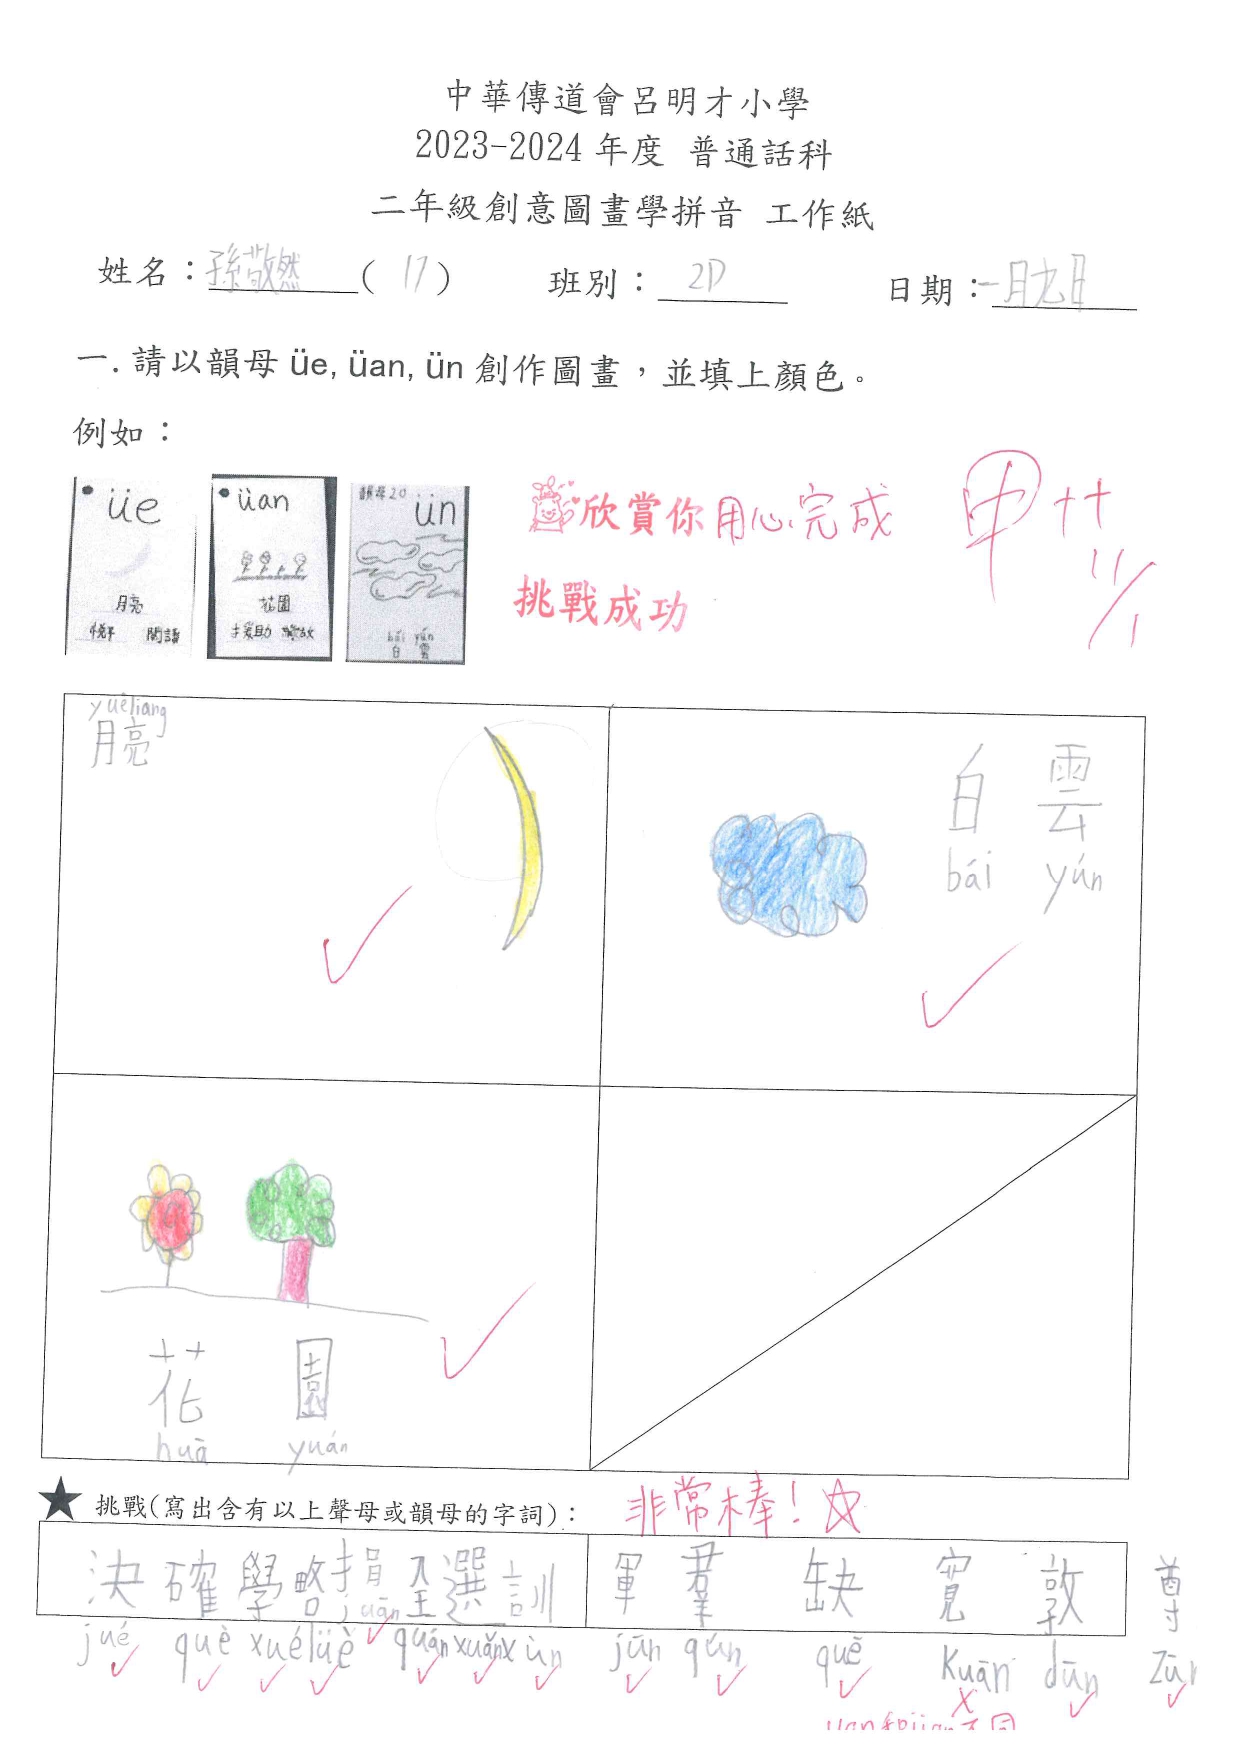 中華傳道會呂明才小學
2023-2024 年度 普通話科
二年級創意圖畫學拼音 工作紙
姓名：孫敬然 ( 17 ) 班別：2D 日期：一月九日
一. 請以韻母 üe, üan, ün 創作圖畫，並填上顏色。
例如：
üe
月亮
閱讀
üan
花園
援助
韻母20
ün
bái yún
白 雲
欣賞你用心完成
挑戰成功
甲++
11/1
yuèliang
月亮
白 雲
bái yún
花 園
huā yuán
★ 挑戰(寫出含有以上聲母或韻母的字詞)：
非常棒！
決 確 學 略 捐 全 選 訓 軍 羣 缺 寬 敦 尊
jué què xué lüè juān quán xuǎn xùn jūn qún quē Kuān dūn Zūn